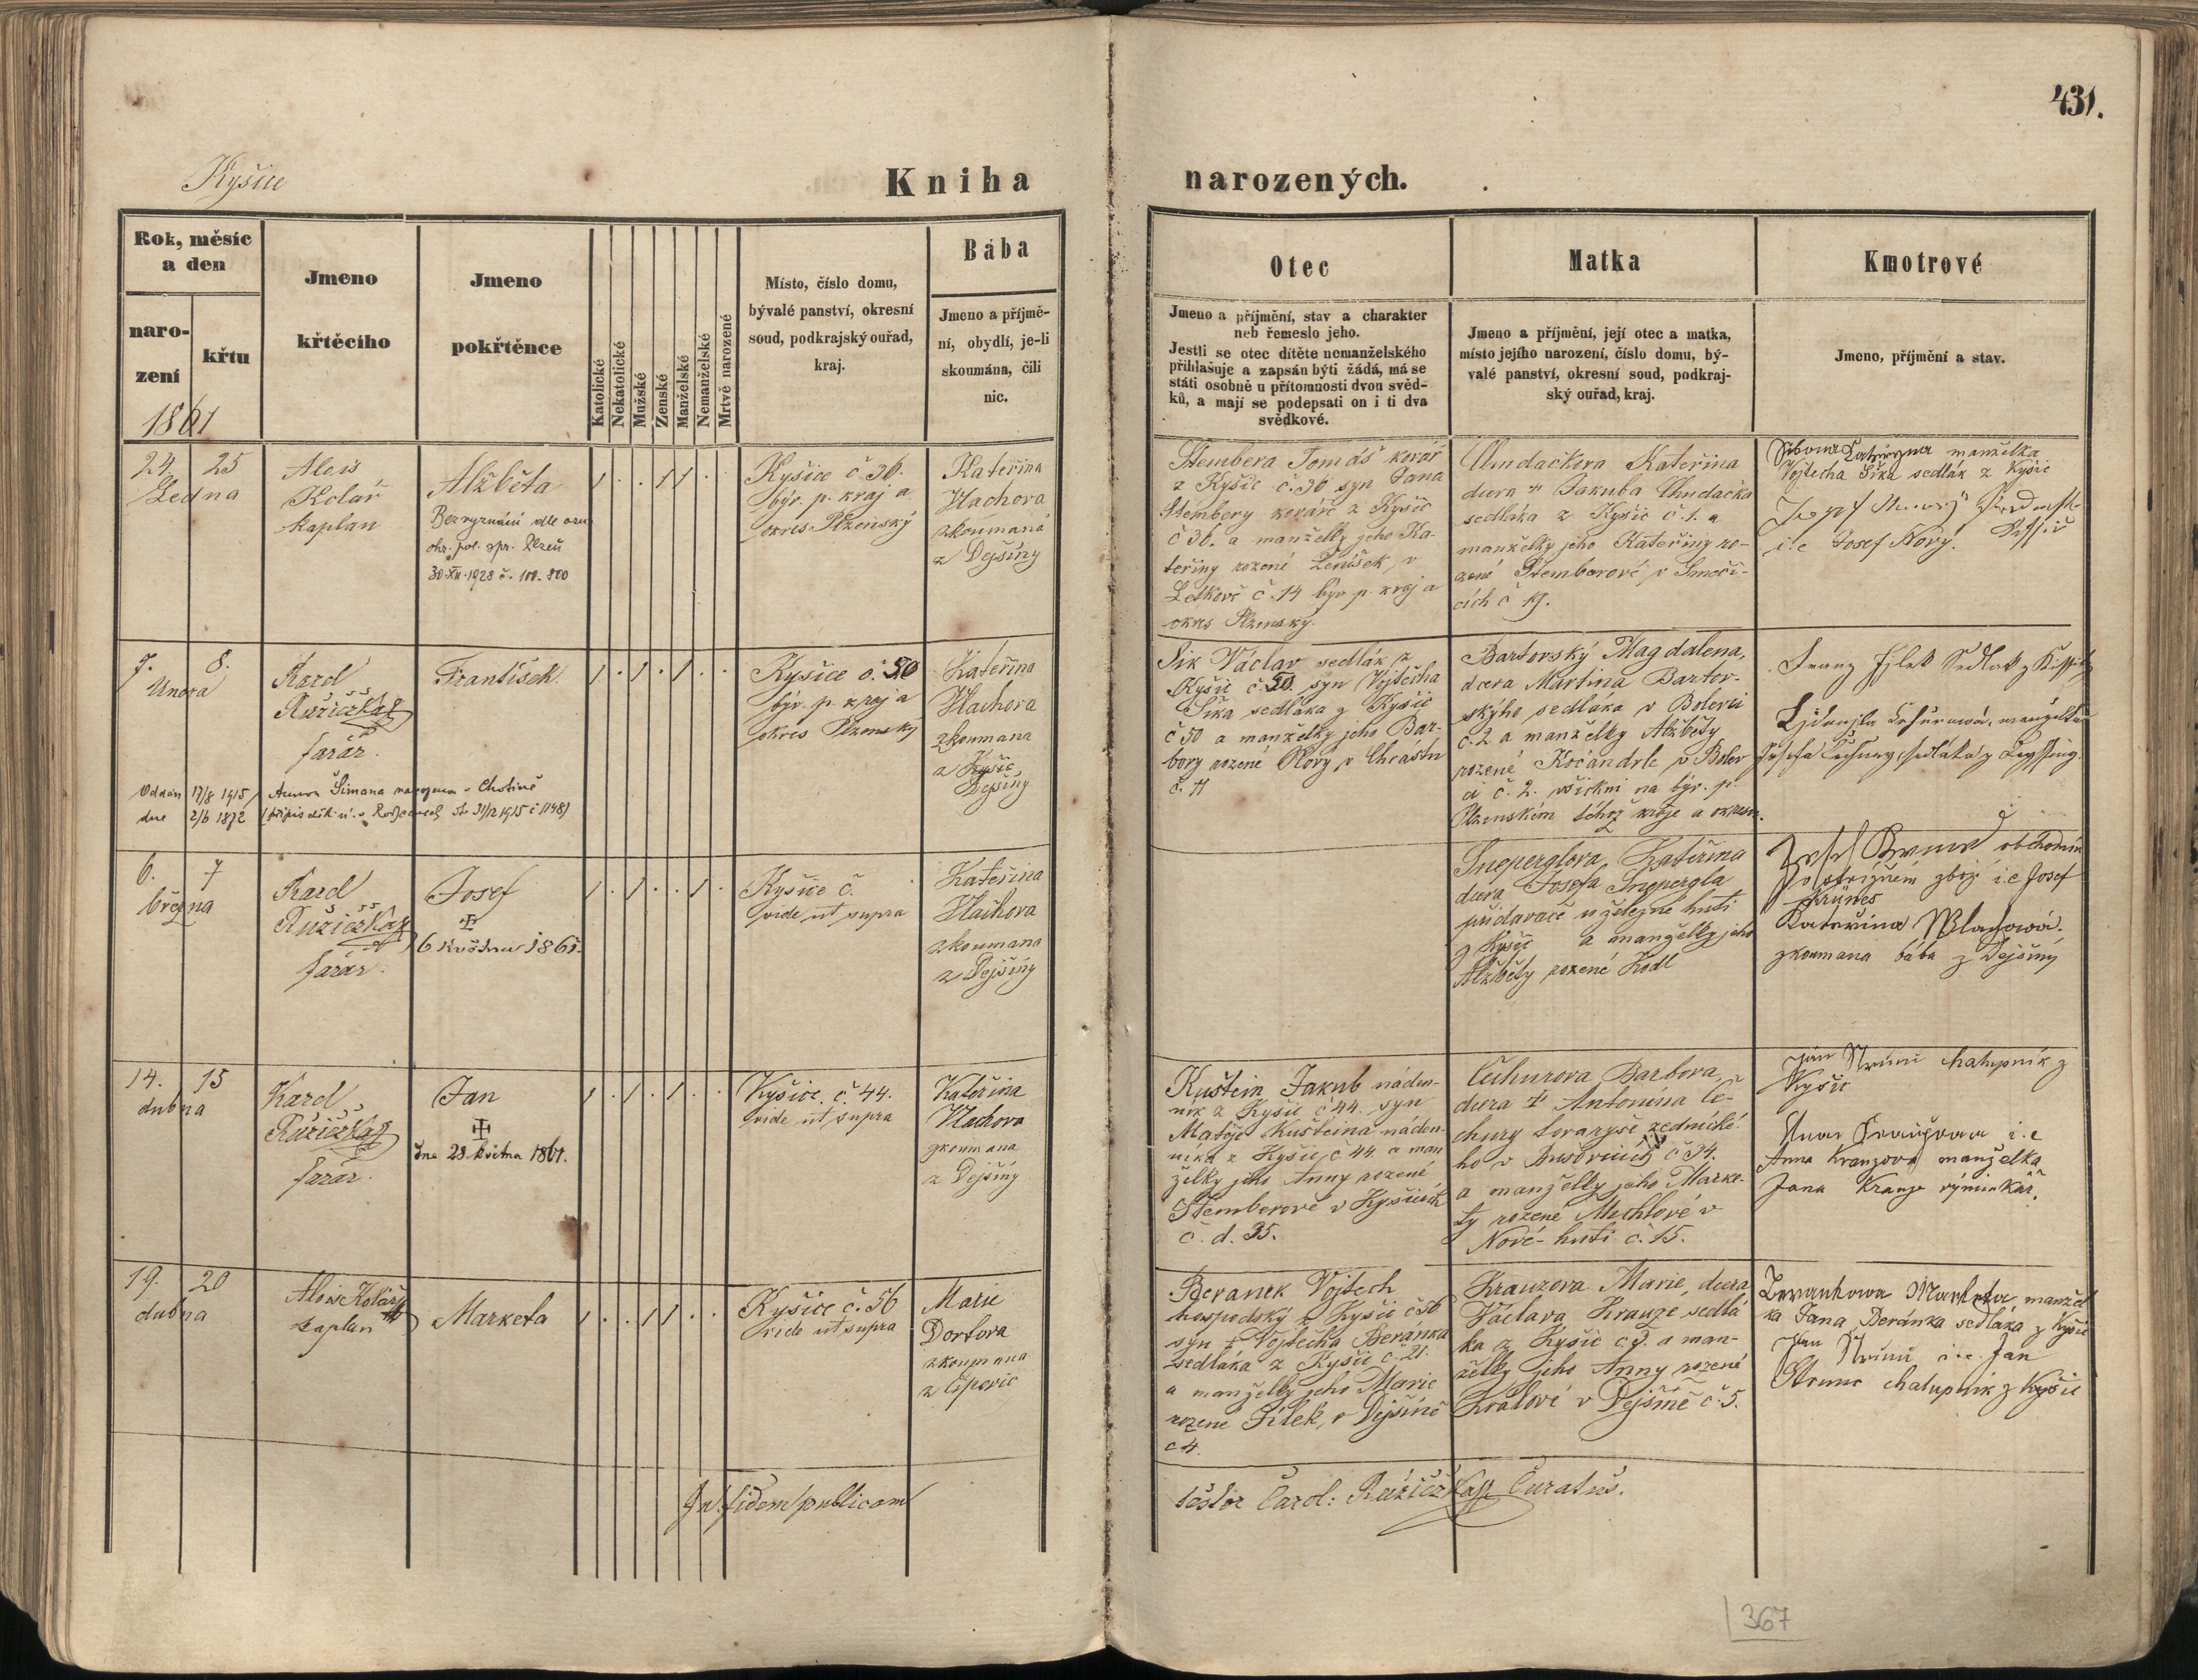 431.
Kyšice
Kniha narozených.
Rok, měsíc
a den
naro-
zení
křtu
1861
Jmeno
křtěcího
Jmeno
pokřtěnce
Katolické
Nekatolické
Mužské
Ženské
Manželské
Nemanželské
Mrtvě narozené
Místo, číslo domu,
bývalé panství, okresní
soud, podkrajský ouřad,
kraj.
Bába
Jmeno a příjmě-
ní, obydlí, je-li
skoumána, čili
nic.
Otec
Jmeno a příjmění, stav a charakter
neb řemeslo jeho.
Jestli se otec dítěte nemanželského
přihlašuje a zapsán býti žádá, má se
státi osobně u přítomnosti dvou svěd-
ků, a mají se podepsati on i ti dva
svědkové.
Matka
Jmeno a příjmění, její otec a matka,
místo jejího narození, číslo domu, bý-
valé panství, okresní soud, podkraj-
ský ouřad, kraj.
Kmotrové
Jmeno, příjmění a stav.
24. 25
Ledna
Alois
Kolář
kaplan
Alžběta
Bez vyznání dle ozn.
okr. pol. spr. Plzeň
30.XII.1928 č. 100.800
1 . . 1 1 . .
Kyšice č 36.
býv. p. kraj a
okres Plzeňský
Kateřina
Wlachova
zkoumaná
z Dejšiny
Štembera Tomáš kovář
z Kyšic č. 36 syn Jana
Štembery kováře z Kyšic
č 36. a manželky jeho Ka-
teřiny rozené Ženíšek, v
Letkově č. 14 býv p. kraj a
okres Plzenský.
Chudačkova Kateřina
dcera + Jakuba Chudačka
sedláka z Kyšic č. 1. a
manželky jeho Kateřiny ro-
zené Štemberové v Smeči-
cích č 19.
manželka
Vojtěcha Šika sedlák z Kyšic
i.e Josef Nový.
7. 8.
Unora
Karel
Růžiczka
farář.
František
1 . 1 . 1 . .
Kyšice č. 50
býv. p. kraj a
okres Plzenský
Kateřina
Wlachova
zkoumana
z Kyšic
Dejšiny
Oddán 17/8 1915 s Annou Šimana narozenou v Chotině
dne 2/6 1872
Šik Václav sedlák z
Kyšic č. 50. syn Vojtěcha
Šika sedláka z Kyšic
č 50 a manželky jeho Bar-
bory rozené Nový v Chrástu
č. 11
Bartovský Magdalena,
dcera Martina Bartov-
ského sedláka v Bolevci
č. 2 a manželky Alžběty
rozené Kočandrle v Bolev
ci č. 2. všickni na býv. p.
Plzenském téhož kraje a okresu.
Franz Jílek Sedlak z
manželka
Josefa sedláka z
6. 7
března
Karel
Růžiczka
farář.
Josef
6 Května 1861.
1 . 1 . . 1 .
Kyšice č.
vide ut supra
Kateřina
Wlachova
zkoumana
z Dejšiny
Sneperglova Kateřina
dcera Josefa Snepergla
přidavače u železné huti
z Kyšic a manželky jeho
Alžběty rozené Kodl
obchodník
zboží i.e Josef
Krünes
Kateřina Wlachowá.
zkoumana bába z Dejšiný
14. 15
dubna
Karel
Růžiczka
farář.
Jan
dne 28 května 1861.
1 . 1 . 1 . .
Kyšice č. 44.
vide ut supra
Kateřina
Wlachova
zkoumana
z Dejšiny
Kuštein Jakub náden-
ník z Kyšic č 44. syn
Matěje Kušteina náden-
níka z Kyšic č 44 a man
želky jeho Anny rozené
Štemberové v Kyšicích
č. d. 35.
Čechurova Barbora,
dcera + Antonína Če-
chury tovaryše zednické-
ho v č 34.
a manželky jeho Marke-
ty rozené Machlové v
Nové-huti č. 15.
Jan Strunc chalupník z
Kyšic
i.e
Anna Kranzova manželka
Jana Kranze
19. 20
dubna
Alois Kolář
kaplan
Marketa
1 . . 1 1 . .
Kyšice č. 56
vide ut supra
Marie
Dortova
zkoumana
z Ejpovic
Beranek Vojtech
hospodský z Kyšic č 56
syn + Vojtěcha Beránka
sedláka z Kyšic č. 21.
a manželky jeho Marie
rozené Jílek, v Dejšině
č 4.
Krauzova Marie, dcera
Václava Krauze sedlá
ka z Kyšic č. 9. a man-
želky jeho Anny rozené
Králové v Dejšině č. 5.
Berankowa Marketa manžel
ka Jana Beránka sedláka z Kyšic
Jan Strunc i.e. Jan
Strunc chalupník z Kyšic
In fidem publicam
testor Carol: Růžiczka Curatus.
367